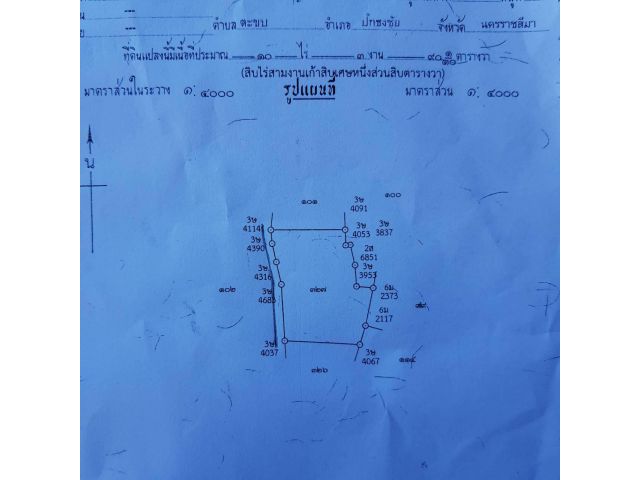 --- ตำบล ตะขบ อำเภอ ปักธงชัย จังหวัด นครราชสีมา
---
ที่ดินแปลงนี้มีเนื้อที่ประมาณ ๑๐ ไร่ ๓ งาน ๙๐ ๑/๑๐ ตารางวา
(สิบไร่สามงานเก้าสิบเศษหนึ่งส่วนสิบตารางวา)
มาตราส่วนในระวาง ๑: ๔๐๐๐ รูปแผนที่ มาตราส่วน ๑: ๔๐๐๐
น
๑๐๑ ๑๐๐
3ษ
4091
3ษ
4114
3ษ
4053
3ษ
3837
3ษ
4390
2ส
6851
3ษ
4316
3ษ
3953
๑๐๒
3ษ
4683
๓๒๗
6ม
2373
6ม
2117
3ษ
4037
3ษ
4067
๑๑๔
๓๒๖